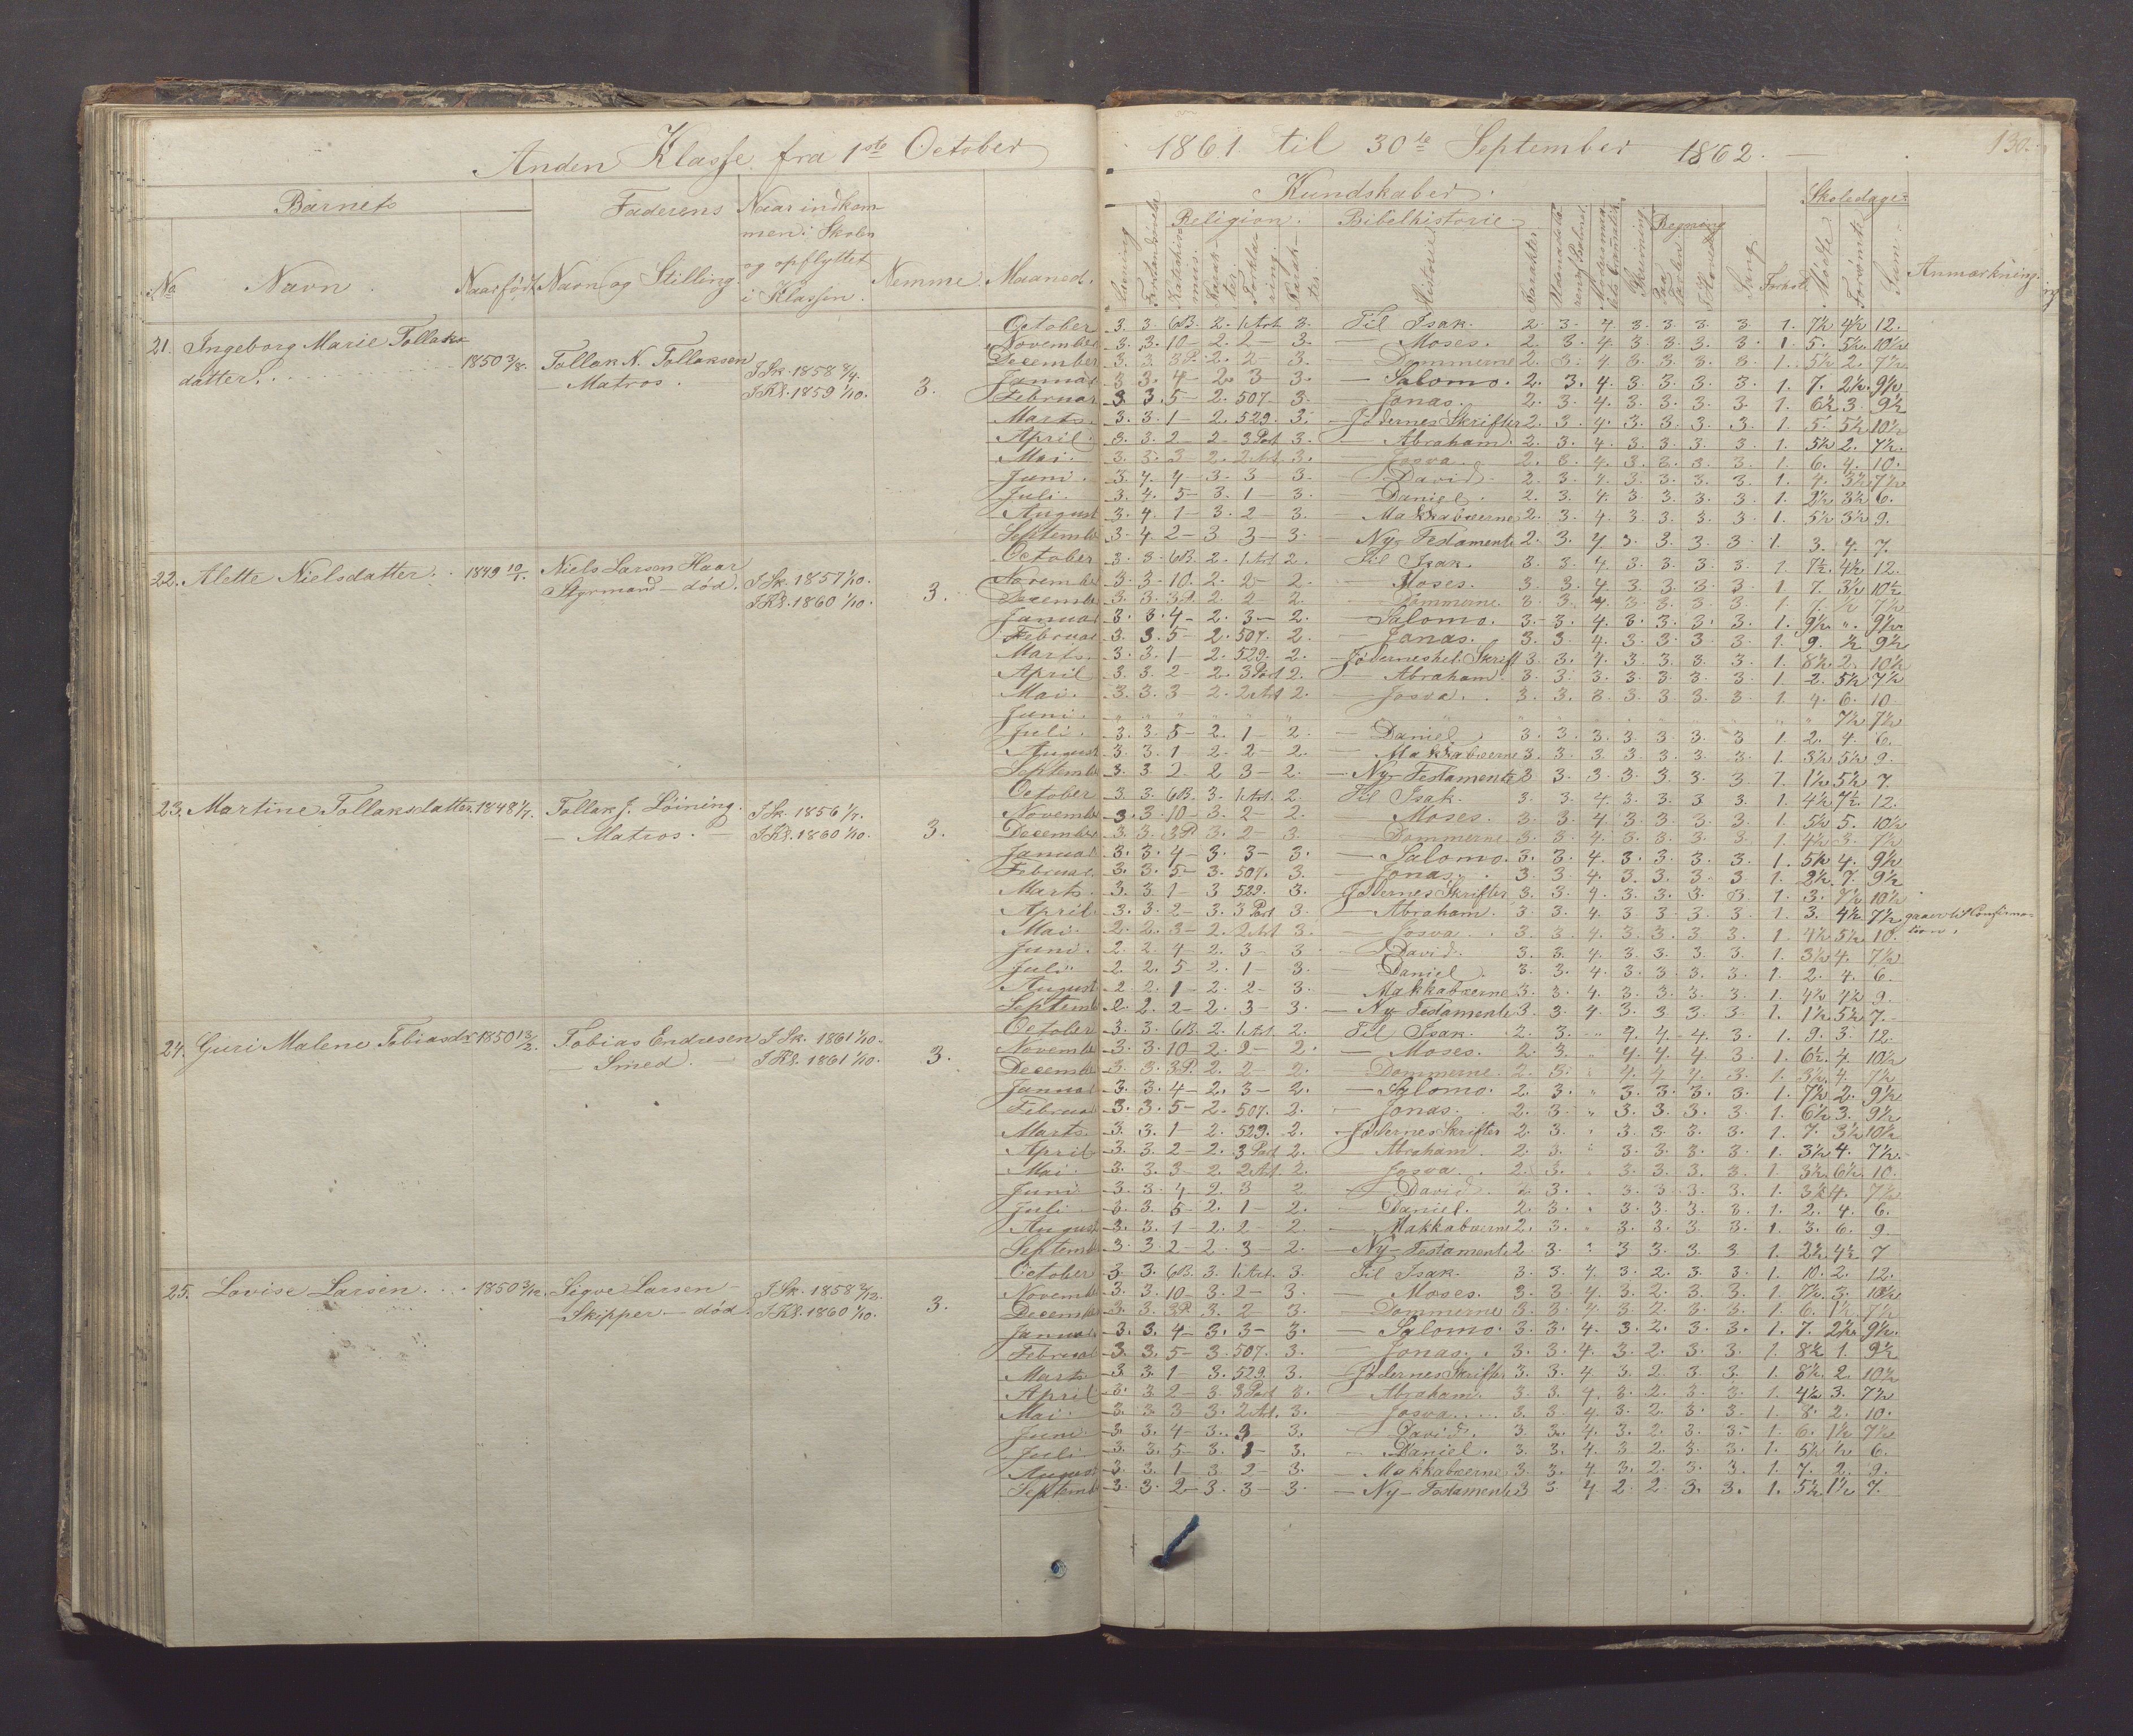 Anden Klasse fra 1ste October 1861 til 30te September 1862. 130.
Barnets
Faderens
Naar indkom-
men i Skolen
og opflyttet
i Klassen.
No Navn. Naar født Navn og Stilling. Nemme. Maaned.
Kundskaber.
Religion. Bibelhistorie
Regning
Skoledage
Læsning
Historie
Karakter
Skrivning
Sang
Forhold
Mødte
Forsømte
Sum.
Anmærkning.
21. Ingeborg Marie Tollaks-
datter. 1850 3/8. Tollak N. Tollaksen
— Matros. I Sk. 1858 8/4.
I Kl. 1859 1/10. 3.
October 3. 3. 6B. 2. 1 Art. 3. Til Isak. 2. 3. 4. 3. 3. 3. 3. 1. 7½ 4½ 12.
November 3. 3. 10 - 2. 2 - 3. — Moses. 2. 3. 4. 3. 3. 3. 3. 1. 5. 5½ 10½
December 3. 3. 3P. 2. 2 - 3. Dommerne 2. 3. 4. 3. 3. 3. 3. 1. 5½ 2. 7½
Januar 3. 3. 4 - 2. 3 - 3. — Salomo. 2. 3. 4. 3. 3. 3. 3. 1. 7. 2½ 9½
Februar 3. 3. 5 - 2. 507. 3. — Jonas. 2. 3. 4. 3. 3. 3. 3. 1. 6½ 3. 9½
Marts. 3. 3. 1 - 2. 529. 3. — Jødernes Skrifter 2. 3. 4. 3. 3. 3. 3. 1. 5. 5½ 10½
April. 3. 3. 2 - 2. 3 Part 3. — Abraham. 2. 3. 4. 3. 3. 3. 3. 1. 5½ 2. 7½.
Mai. 3. 3. 3 - 2. 2 Art. 3. — Josva. 2. 3. 4. 3. 3. 3. 3. 1. 6. 4. 10.
Juni. 3. 4. 4 - 3. 3 - 3. — David. 2. 3. 4. 3. 3. 3. 3. 1. 4. 3½ 7½
Juli. 3. 4. 5 - 3. 1 - 3. — Daniel. 2. 3. 4. 3. 3. 3. 3. 1. 2½ 3½ 6.
August 3. 4. 1 - 3. 2 - 3. — Makkabæerne 2. 3. 4. 3. 3. 3. 3. 1. 5½ 3½ 9.
Septemb. 3. 4. 2 - 3. 3 - 3. — Ny-Testamente 2. 3. 4. 3. 3. 3. 3. 1. 3. 4. 7.
22. Alette Nielsdatter. 1849 10/1. Niels Larsen Haar
Styrmand — død. I Sk. 1857 1/10.
I Kl. 1860 1/10. 3.
October 3. 3. 6B. 2. 1 Art. 2. Til Isak. 3. 3. 4. 3. 3. 3. 3. 1. 7½ 4½ 12.
Novembe 3. 3. 10. 2. 2 - 2. — Moses. 3. 3. 4. 3. 3. 3. 3. 1. 7. 3½ 10½
Decembe 3. 3. 3P. 2. 2 - 2. — Dommerne. 3. 3. 4. 3. 3. 3. 3. 1. 7. ½ 7½
Januar 3. 3. 4 - 2. 3 - 2. — Salomo. 3. 3. 4. 3. 3. 3. 3. 1. 9½ „ 9½
Februar 3. 3. 5 - 2. 507. 2. — Jonas. 3. 3. 4. 3. 3. 3. 3. 1. 9. ½ 9½
Marts. 3. 3. 1 - 2. 529. 2. — Jødernes hel. Skrift 3. 3. 4. 3. 3. 3. 3. 1. 8½ 2. 10½
April 3. 3. 2 - 2. 3 Part 2. — Abraham. 3. 3. 3. 3. 3. 3. 3. 1. 2. 5½ 7½
Mai. 3. 3. 3 2. 2 Art 2. — Josva. 3. 3. 3. 3. 3. 3. 3. 1. 4. 6. 10
Juni. „ „ „ „ „ „ „ „ „ „ „ „ „ „ „ „ 7½ 7½
Juli. 3. 3. 5 - 2. 1 - 2. — Daniel. 3. 3. 3. 3. 3. 3. 3. 1. 2. 4. 6.
August 3. 3. 1 - 2. 2 - 2. — Makkabæerne 3. 3. 3. 3. 3. 3. 3. 1. 3½ 5½ 9.
Septembe 3. 3. 2. 2. 3 - 2. — Ny-Testamente 3. 3. 3. 3. 3. 3. 3. 1. 1½ 5½ 7.
23. Martine Tollaksdatter. 1848 1/7. Tollak J. Löining.
— Matros. — I Sk. 1856 1/7.
I Kl. 1860 1/10. 3.
October 3. 3. 6B. 3. 1 Art. 2. Til Isak. 3. 3. 4. 3. 3. 3. 3. 1. 4½ 7½ 12.
Novembe 3. 3. 10 - 3. 2 - 2. — Moses. 3. 3. 4. 3. 3. 3. 3. 1. 5½ 5. 10½
December 3. 3. 3P. 3. 2 - 3. Dommerne 3. 3. 4. 3. 3. 3. 3. 1. 4½ 3. 7½
Januar 3. 3. 4 - 3. 3 - 3. — Salomo. 3. 3. 4. 3. 3. 3. 3. 1. 5½ 4. 9½
Februar. 3. 3. 5 - 3. 507. 3. — Jonas. 3. 3. 4. 3. 3. 3. 3. 1. 2½ 7. 9½
Marts. 3. 3. 1 - 3 529. 3. Jødernes Skrifter 3. 3. 4. 3. 3. 3. 3. 1. 3. 7½ 10½
April. 3. 3. 2 - 3. 3 Part 3. — Abraham. 3. 3. 4. 3. 3. 3. 3. 1. 3. 4½ 7½ gaaer til Confirma-
Mai. 2. 2. 3 - 2. 2 Art 3. — Josva. 3. 3. 4. 3. 3. 3. 3. 1. 4½ 5½ 10. tion.
Juni. 2. 2. 4 - 2. 3 - 3. — David. 3. 3. 4. 3. 3. 3. 3. 1. 3½ 4. 7½
Juli. 2. 2. 5 - 2. 1 - 3. — Daniel. 3. 3. 4. 3. 3. 3. 3. 1. 2. 4. 6.
August 2. 2. 1 - 2. 2 - 3. — Makkabæerne 3. 3. 4. 3. 3. 3. 3. 1. 4½ 4½ 9.
Septemb. 2. 2. 2 - 2. 3 - 3. — Ny-Testamente 3. 3. 4. 3. 3. 3. 3. 1. 1½ 5½ 7.
24. Guri Malene Tobiasdr 1850 13/2. Tobias Endresen
— Smed. — I Sk. 1861 1/10.
I Kl. 1861 1/10. 3.
October 3. 3. 6B. 2. 1 Art. 2. Til Isak. 2. 3. „ 4. 4. 4. 3. 1. 9. 3. 12.
Novembe 3. 3. 10 - 2. 2 - 2. — Moses. 2. 3. „ 4. 4. 4. 3. 1. 6½ 4. 10½
Decembe 3. 3. 3P. 2. 2 - 2. — Dommerne. 2. 3. „ 4. 4. 4. 3. 1. 3½ 4. 7½
Januar 3. 3. 4 - 2. 3 - 2. — Salomo. 2. 3. „ 3. 3. 3. 3. 1. 7½ 2. 9½
Februar 3. 3. 5 - 2. 507. 2. — Jonas. 2. 3. „ 3. 3. 3. 3. 1. 6½ 3. 9½
Marts. 3. 3. 1 - 2. 529. 2. — Jødernes Skrifter 2. 3. „ 3. 3. 3. 3. 1. 7. 3½ 10½
April 3. 3. 2 - 2. 3 Part 2. — Abraham. 2. 3. „ 3. 3. 3. 3. 1. 3½ 4. 7½
Mai 3. 3. 3 2. 2 Art. 2. — Josva. 2. 3. „ 3. 3. 3. 3. 1. 3½ 6½ 10.
Juni 3. 3. 4 2. 3 2 — David. 2. 3. „ 3. 3. 3. 3. 1. 3½ 4. 7½
Juli 3. 3. 5 - 2. 1 - 2. — Daniel. 2. 3. „ 3. 3. 3. 3. 1. 2. 4. 6.
August 3. 3. 1 - 2. 2 - 2. — Makkabæerne 2. 3. „ 3. 3. 3. 3. 1. 3. 6. 9
Septemb. 3. 3. 2 - 2. 3 - 2. — Ny-Testamente 2. 3. „ 3. 3. 3. 3. 1. 2½ 4½ 7
25. Lovise Larsen. 1850 3/12. Sigve Larsen —
— Skipper. — død. I Sk. 1858 2/13.
I Kl. 1860 1/10. 3.
October 3. 3. 6B. 3. 1 Art. 3. Til Isak. 3. 3. 4. 3. 2. 3. 3. 1. 10. 2. 12.
Novemb. 3. 3. 10 - 3. 2 - 3. — Moses. 3. 3. 4. 3. 2. 3. 3. 1. 7½ 3. 10½
Decembe 3. 3. 3P. 3. 2 3. Dommerne 3. 3. 4. 3. 2. 3. 3. 1. 6. 1½ 7½
Januar 3. 3. 4 - 3. 3 - 3. — Salomo. 3. 3. 4. 3. 2. 3. 3. 1. 7. 2½ 9½.
Februar 3. 3. 5 - 3. 507. 3. — Jonas. 3. 3. 4. 3. 2. 3. 3. 1. 8½ 1. 9½
Marts 3. 3. 1 - 3. 529. 3. Jødernes Skrifter 3. 3. 4. 3. 2. 3. 3. 1. 8½ 2. 10½
April 3. 3. 2 - 3. 3 Part 3. — Abraham. 3. 3. 4. 3. 2. 3. 3. 1. 4½ 3. 7½
Mai. 3. 3. 3 - 3. 2 Art. 3. — Josva. 3. 3. 4. 3. 2. 3. 3. 1. 8. 2. 10.
Juni 3. 3. 4 - 3. 3 3. — David. 3. 3. 4. 3. 2. 3. 3. 1. 6. 1½ 7½
Juli. 3. 3. 5 - 3. 1 - 3. — Daniel. 3. 3. 4. 3 2. 3. 3. 1. 5½ ½ 6.
August 3. 3. 1 - 3. 2 - 3. — Makkabæerne 3. 3. 4. 3. 2. 3. 3. 1. 7. 2. 9.
Septemb. 3. 3. 2 - 3. 3 - 3. — Ny-Testamente 3 3 4 2. 2. 3. 3. 1. 5½ 1½ 7.